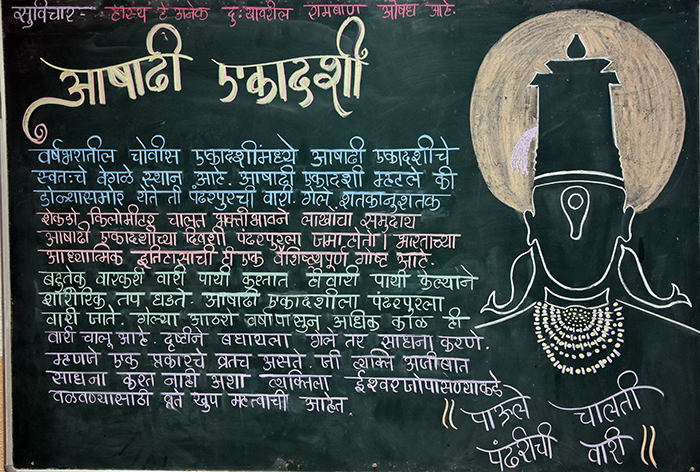 सुविचार - हास्य हे अनेक दुःखावरील रामबाण औषध आहे.
आषाढी एकादशी
वर्षभरातील चोवीस एकादशींमध्ये आषाढी एकादशीचे
स्वतःचे वेगळे स्थान आहे. आषाढी एकादशी म्हटले की
डोळ्यासमोर येते ती पंढरपुरची वारी. गेले शतकानुशतक
शेकडो किलोमीटर चालत भक्तीभावाने लाखोंचा समुदाय
आषाढी एकादशीच्या दिवशी पंढरपुरला जमा होतो। भारताच्या
आध्यात्मिक इतिहासाची ही एक वैशिष्ट्यपूर्ण गोष्ट आहे.
बहुतेक वारकरी वारी पायी करतात. ही वारी पायी केल्याने
शारीरिक तप घडते. आषाढी एकादशीला पंढरपुरला
वारी जाते. गेल्या आठशे वर्षांपासुन अधिक काळ ही
वारी चालू आहे. दृष्टीने बघायला गेले तर साधना करणे.
म्हणजे एक प्रकारचे व्रतच असते. जी व्यक्ति अजीबात
साधना करत नाही अशा व्यक्तिला ईश्वर जोपासण्याकडे
वळवण्यासाठी व्रते खुप महत्वाची आहेत.
॥ पाऊले चालती
पंढरीची वारी ॥